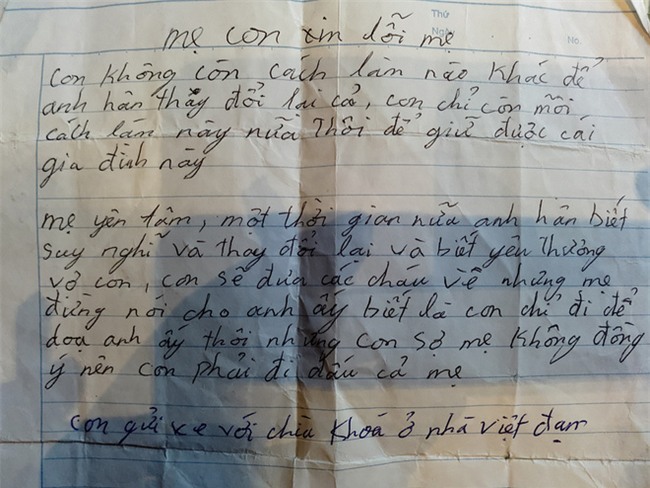 Thứ
Ngày
No.
mẹ con xin lỗi mẹ
con không còn cách làn nào khác để
anh hân thăy đổi lại cả, con chỉ còn mỗi
cách làn này nữa thôi để giữ được cái
gia đình này
mẹ yên tâm, một thời gian nữa anh hân biết
suy nghĩ và thay đổi lại và biết yêu thương
vợ con, con sẽ đưa các cháu về nhưng mẹ
đừng nói cho anh ấy biết là con chỉ đi để
doạ anh ấy thôi nhưng con sợ mẹ không đồng
ý nên con phải đi dấu cả mẹ
con gửi xe với chìa khoá ở nhà việt đạm